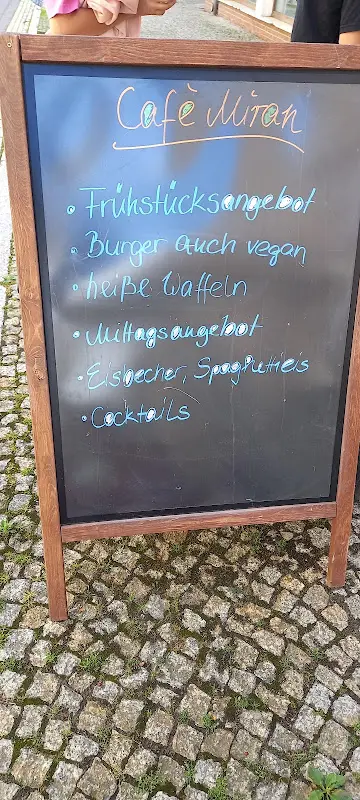 Cafè Miran
• Frühstücksangebot
• Burger auch vegan
• heiße Waffeln
• Mittagsangebot
• Eisbecher, Spaghettieis
• Cocktails